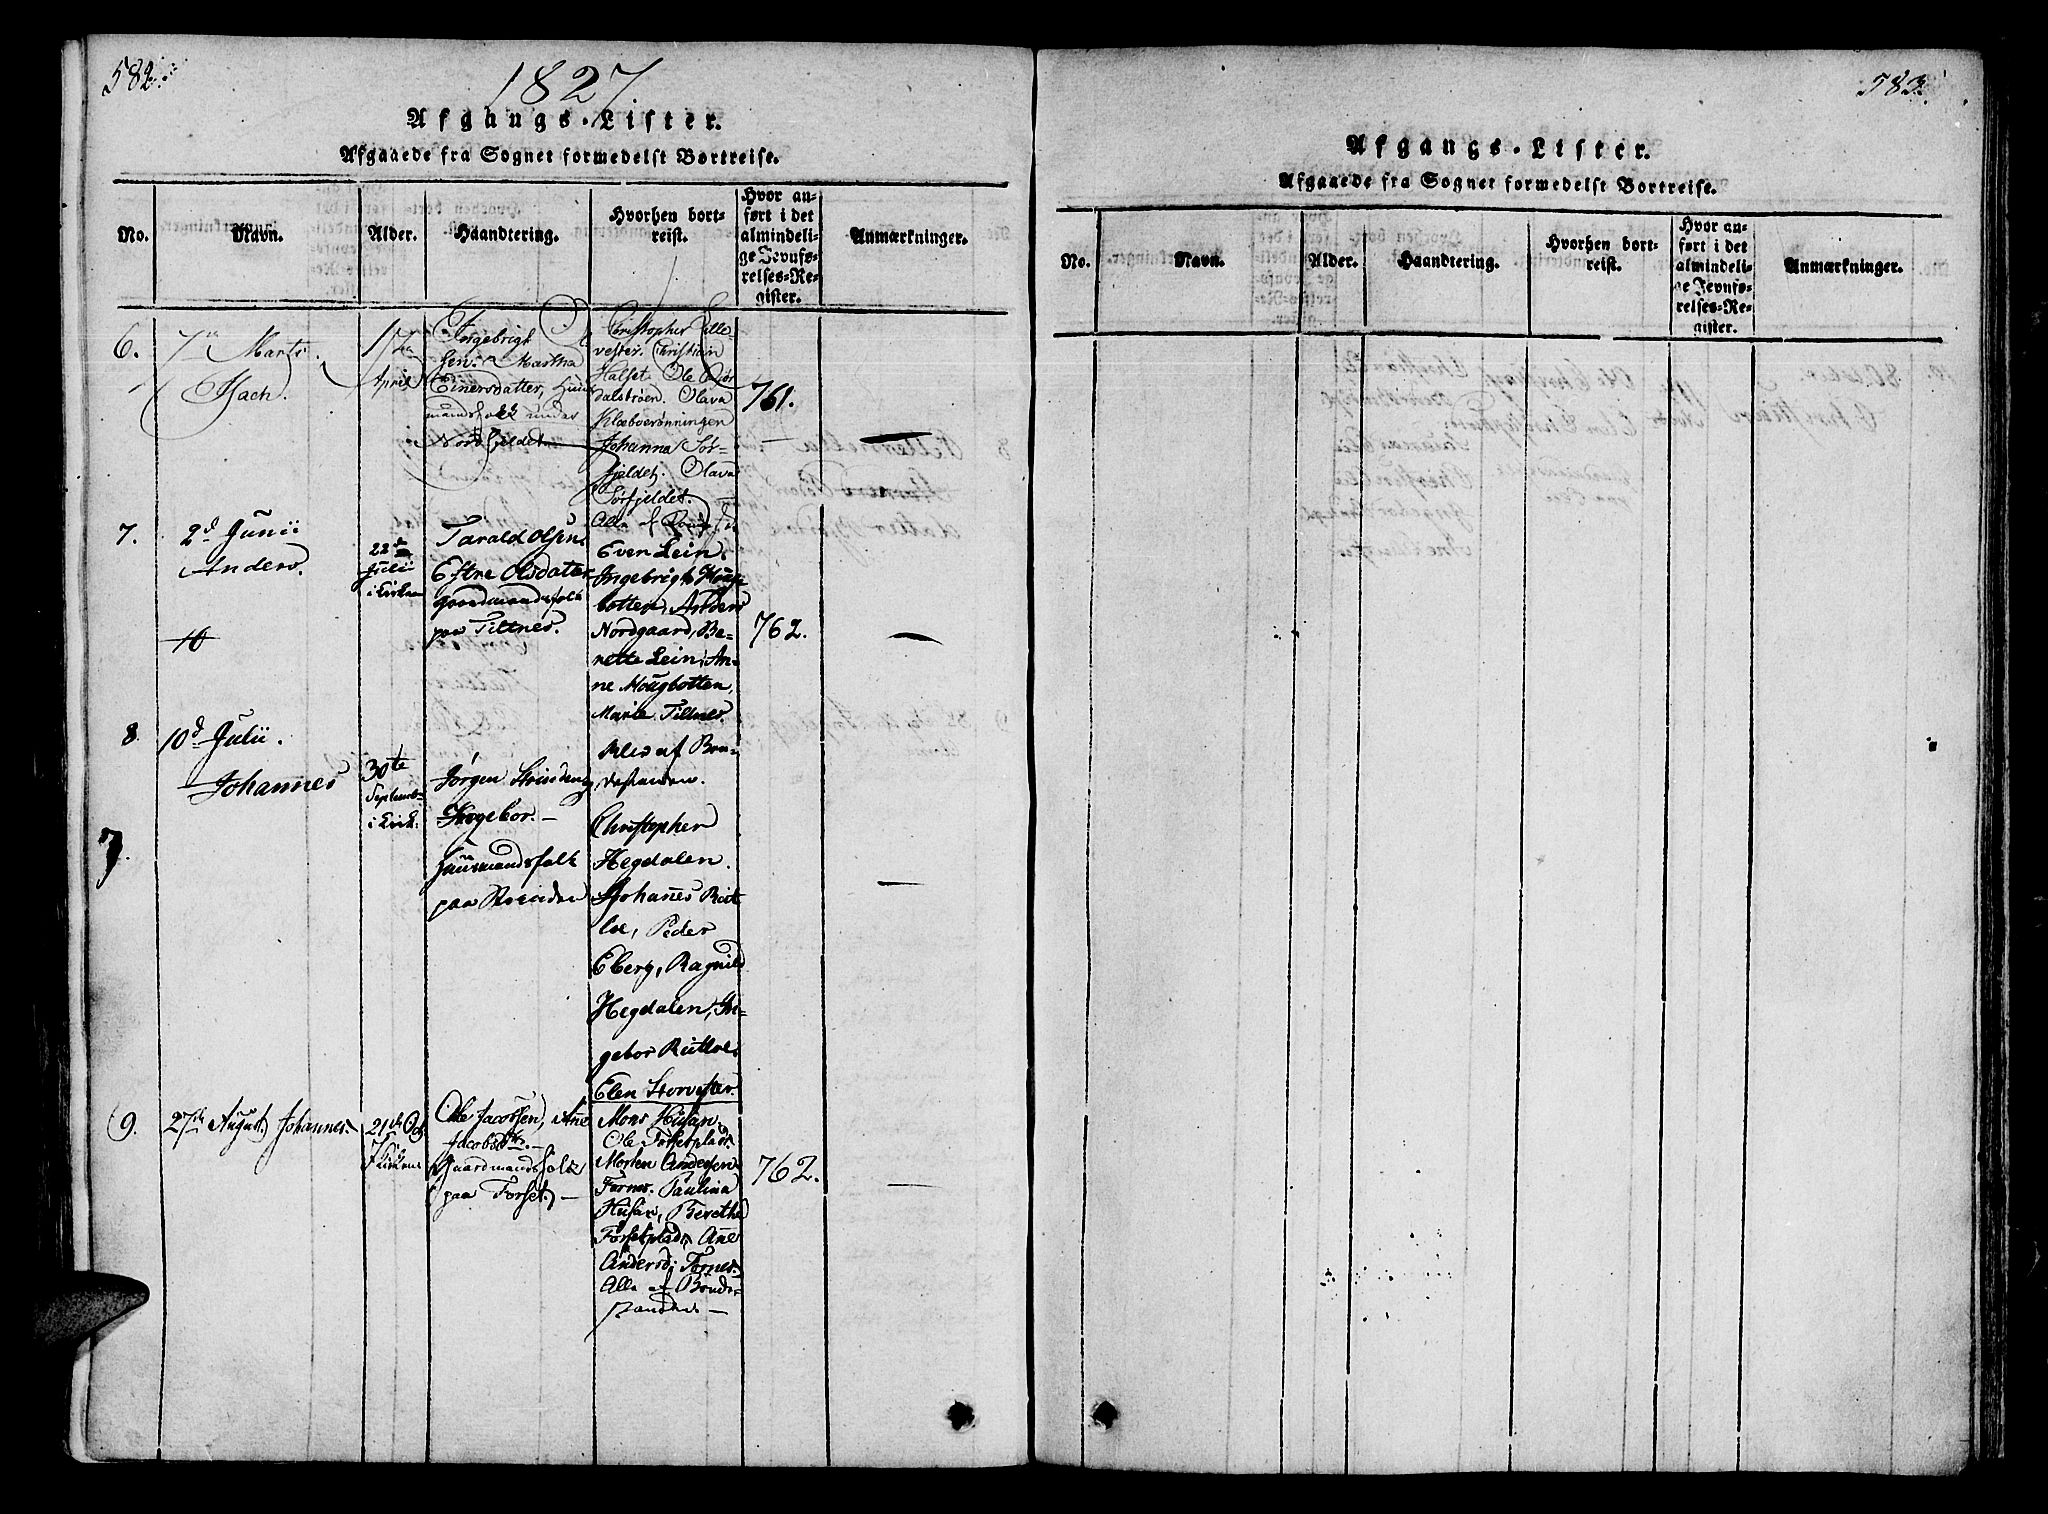 582.
1827.
Afgangs-Lister.
Afgaaede fra Sognet formedelst Bortreise.
No.
Navn.
Alder.
Haandtering.
Hvorhen bort-
reist.
Hvor an-
ført i det
almindeli-
ge Jevnfø-
relses-Re-
gister.
Anmærkninger.
6.
Marts.
Isach.
April
Ingebrigt
sen. Martha
Einersdatter,
under
Christopher Lille
vester. Christian
Halset. Ole
dalsrøen. Olava
Klæboerønningen
Johanna Sør-
fjeldet, Olava
Sørfjeldet.
Alla af
761.
7.
2d Junii
Anders.
22de
Julii
i Kirken
Tarald Olsen.
Olsdatter
gaardmandsfolk
paa Tiltnes.
Even Lein.
Ingebrigt Moug-
botten, Anders
Nordgaard, Be-
rette Lein, An-
ne Mougbotten,
Marie Tiltnes.
Alle af Bon-
destanden.
762.
10
8.
10d Julii.
Johannes
30te
Septemb.
i Kirk:
Jørgen Strinden,
Ingebor.-
Huusmandsfolk
paa Strinden
Christopher
Hegdalen.
Johanes
Peder
Eberg, Ragnild
Hegdalen, In-
gebor
Elen Storvester.
9.
27de August, Johannes.
21de Oct
Ole Jacobsen, Ane
Jacobsdtr.-
Gaardmandsfolk
paa Forset,-
Mons Husan,
Ole Forsetplads.
Morten Andersen
Fornes. Paulina
Husan, Berethe
Forsetplads, Ane
Andersd: Fornes.
Alle af Bonde-
standen-
762.
583.
Afgangs-Lister.
Afgaaede fra Sognet formedelst Bortreise.
No.
Navn.
Alder.
Haandtering.
Hvorhen bort-
reist.
Hvor an-
ført i det
almindeli-
ge Jevnfø-
relses-Re-
gister.
Anmærkninger.